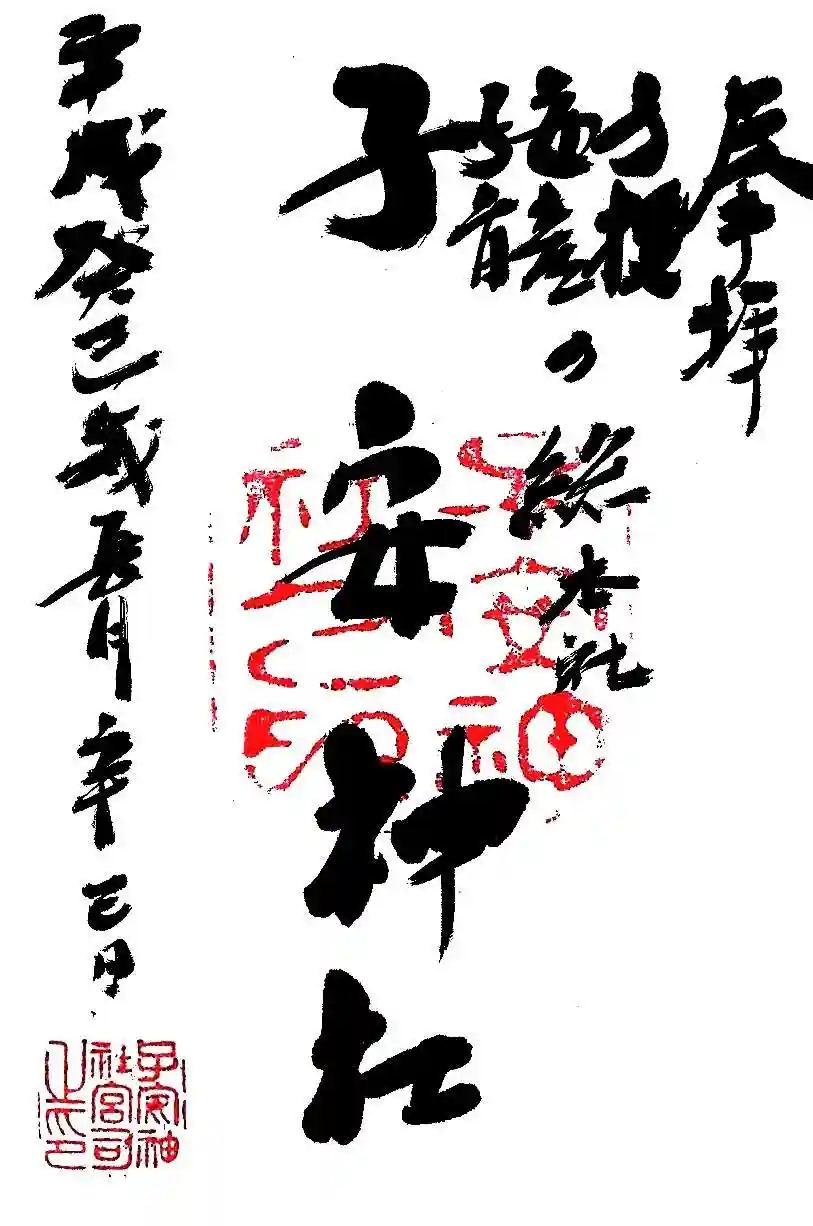 奉拝
子授
安産
子育
の総本社
子安神社
平成癸巳歳長月辛巳日
子安神
社之印
子安神
社宮司
之印